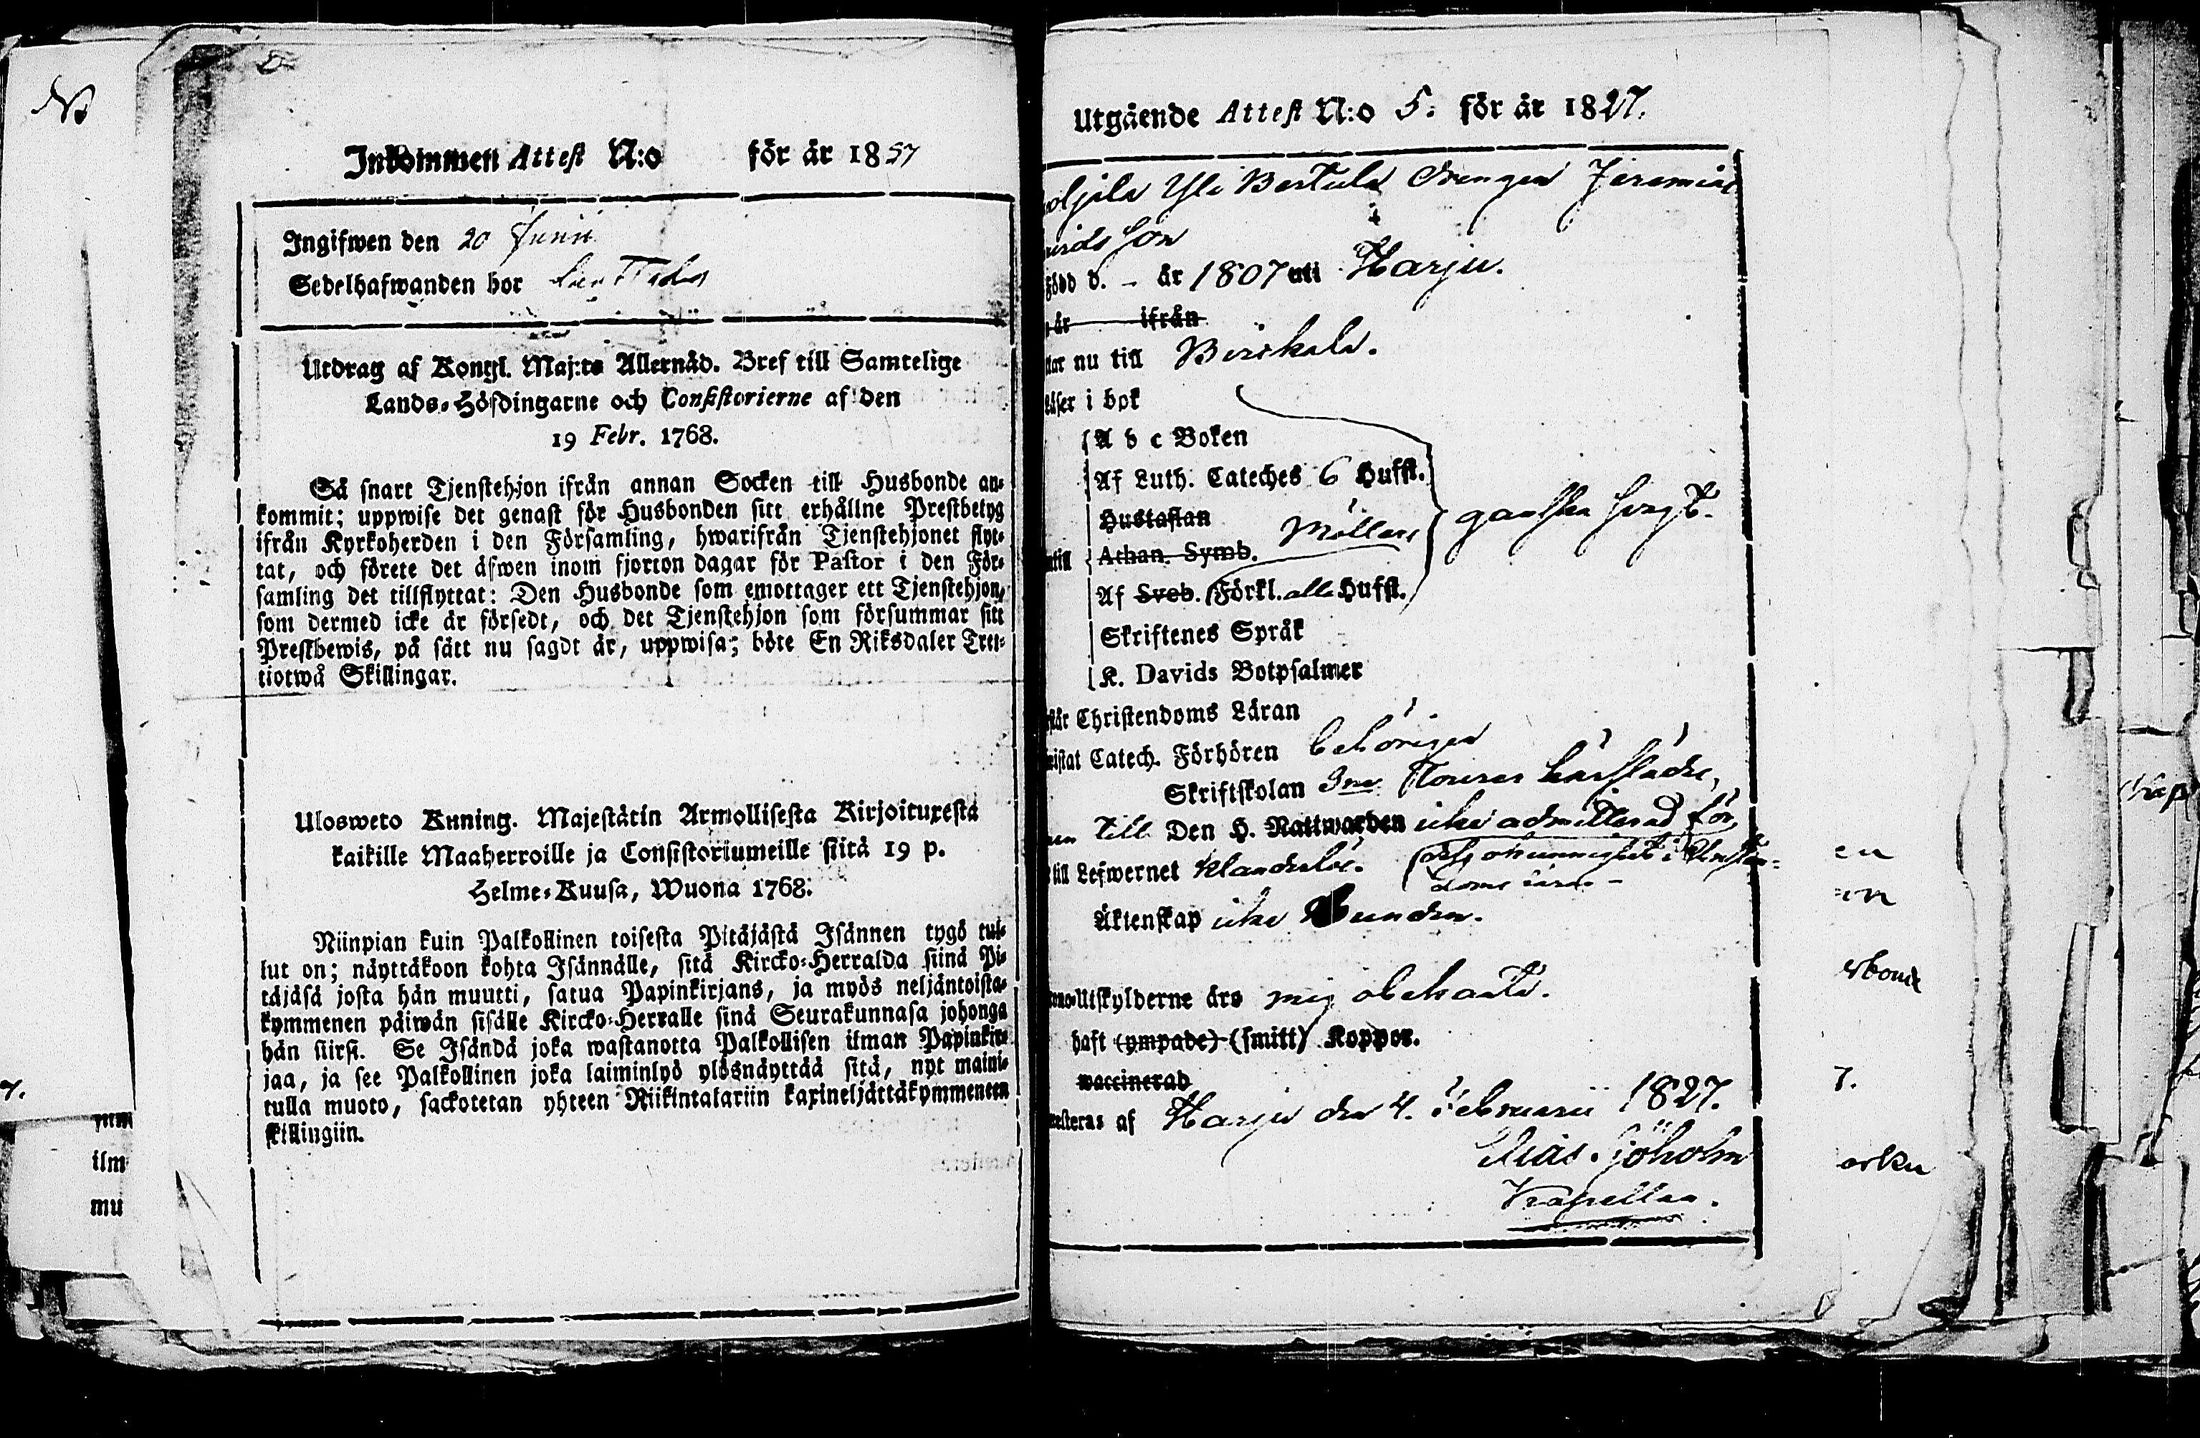 Inkommen Attest N:o för år 1857
Ingifwen den 20 Junii
Sedelhafwanden bor
Utdrag af Kongl. Maj:ts Allernåd. Bref till Samtelige
Lands-Höfdingarne och Consistorierne af den
19 Febr. 1768.
Så snart Tjenstehjon ifrån annan Socken till Husbonde an-
kommit; uppwise det genast för Husbonden sitt erhållne Prestbetyg
ifrån Kyrkoherden i den Församling, hwarifrån Tjenstehjonet flyt-
tat, och förete det äfwen inom fjorton dagar för Pastor i den För-
samling det tillflyttat: Den Husbonde som emottager ett Tjenstehjon,
som dermed icke är försedt, och det Tjenstehjon som försummar sitt
Prestbewis, på sätt nu sagdt är, uppwisa; böte En Riksdaler Tret-
tiotwå Skillingar.
Ulosweto Kuning. Majestätin Armollisesta Kirjoituxesta
kaikille Maaherroille ja Consistoriumeille siitä 19 p.
Helme-Kuusa, Wuona 1768.
Niinpian kuin Palkollinen toisesta Pitäjästä Isännen tygö tul-
lut on; näyttäkoon kohta Isännälle, sitä Kircko-Herralda siinä Pi-
täjäsä josta hän muutti, satua Papinkirjans, ja myös neljäntoista-
kymmenen päiwän sisälle Kircko-Herralle sinä Seurakunnasa johonga
hän siirsi. Se Isändä joka wastanotta Palkollisen ilman Papinkir-
jaa, ja see Palkollinen joka laiminlyö ylösnäyttää sitä, nyt maini-
tulla muoto, sackotetan yhteen Riikintalariin kaxineljättäkymmeneen
skillingiin.
Utgående Attest N:o 5. för år 1827.
Yli Bertula Drengen Jeremias
son
född d. - år 1807 uti Harju.
år ifrån
nu till Birkala.
läser i bok
A b c Boken
Af Luth. Cateches 6 Hufst.
Hustaflan
Athan. Symb. Möllers ganska svagt.
Af Sveb. Förkl. alla Hufst.
Skriftenes Språk
K. Davids Botpsalmer
Christendoms Läran
Catech. Förhören behörigen
Skriftskolan
till Den H. Nattwarden icke admitterad för
till Lefwernet klanderlös. dess okunnighet i Christen-
doms
Äktenskap icke bunden.
äro mig obekanta.
haft (ympade) (smitt) Koppor.
waccinerad
af Harju den 4. Februarii 1827.
Elias Sjöholm
Kapellan.
7.
ilm
mu
7.